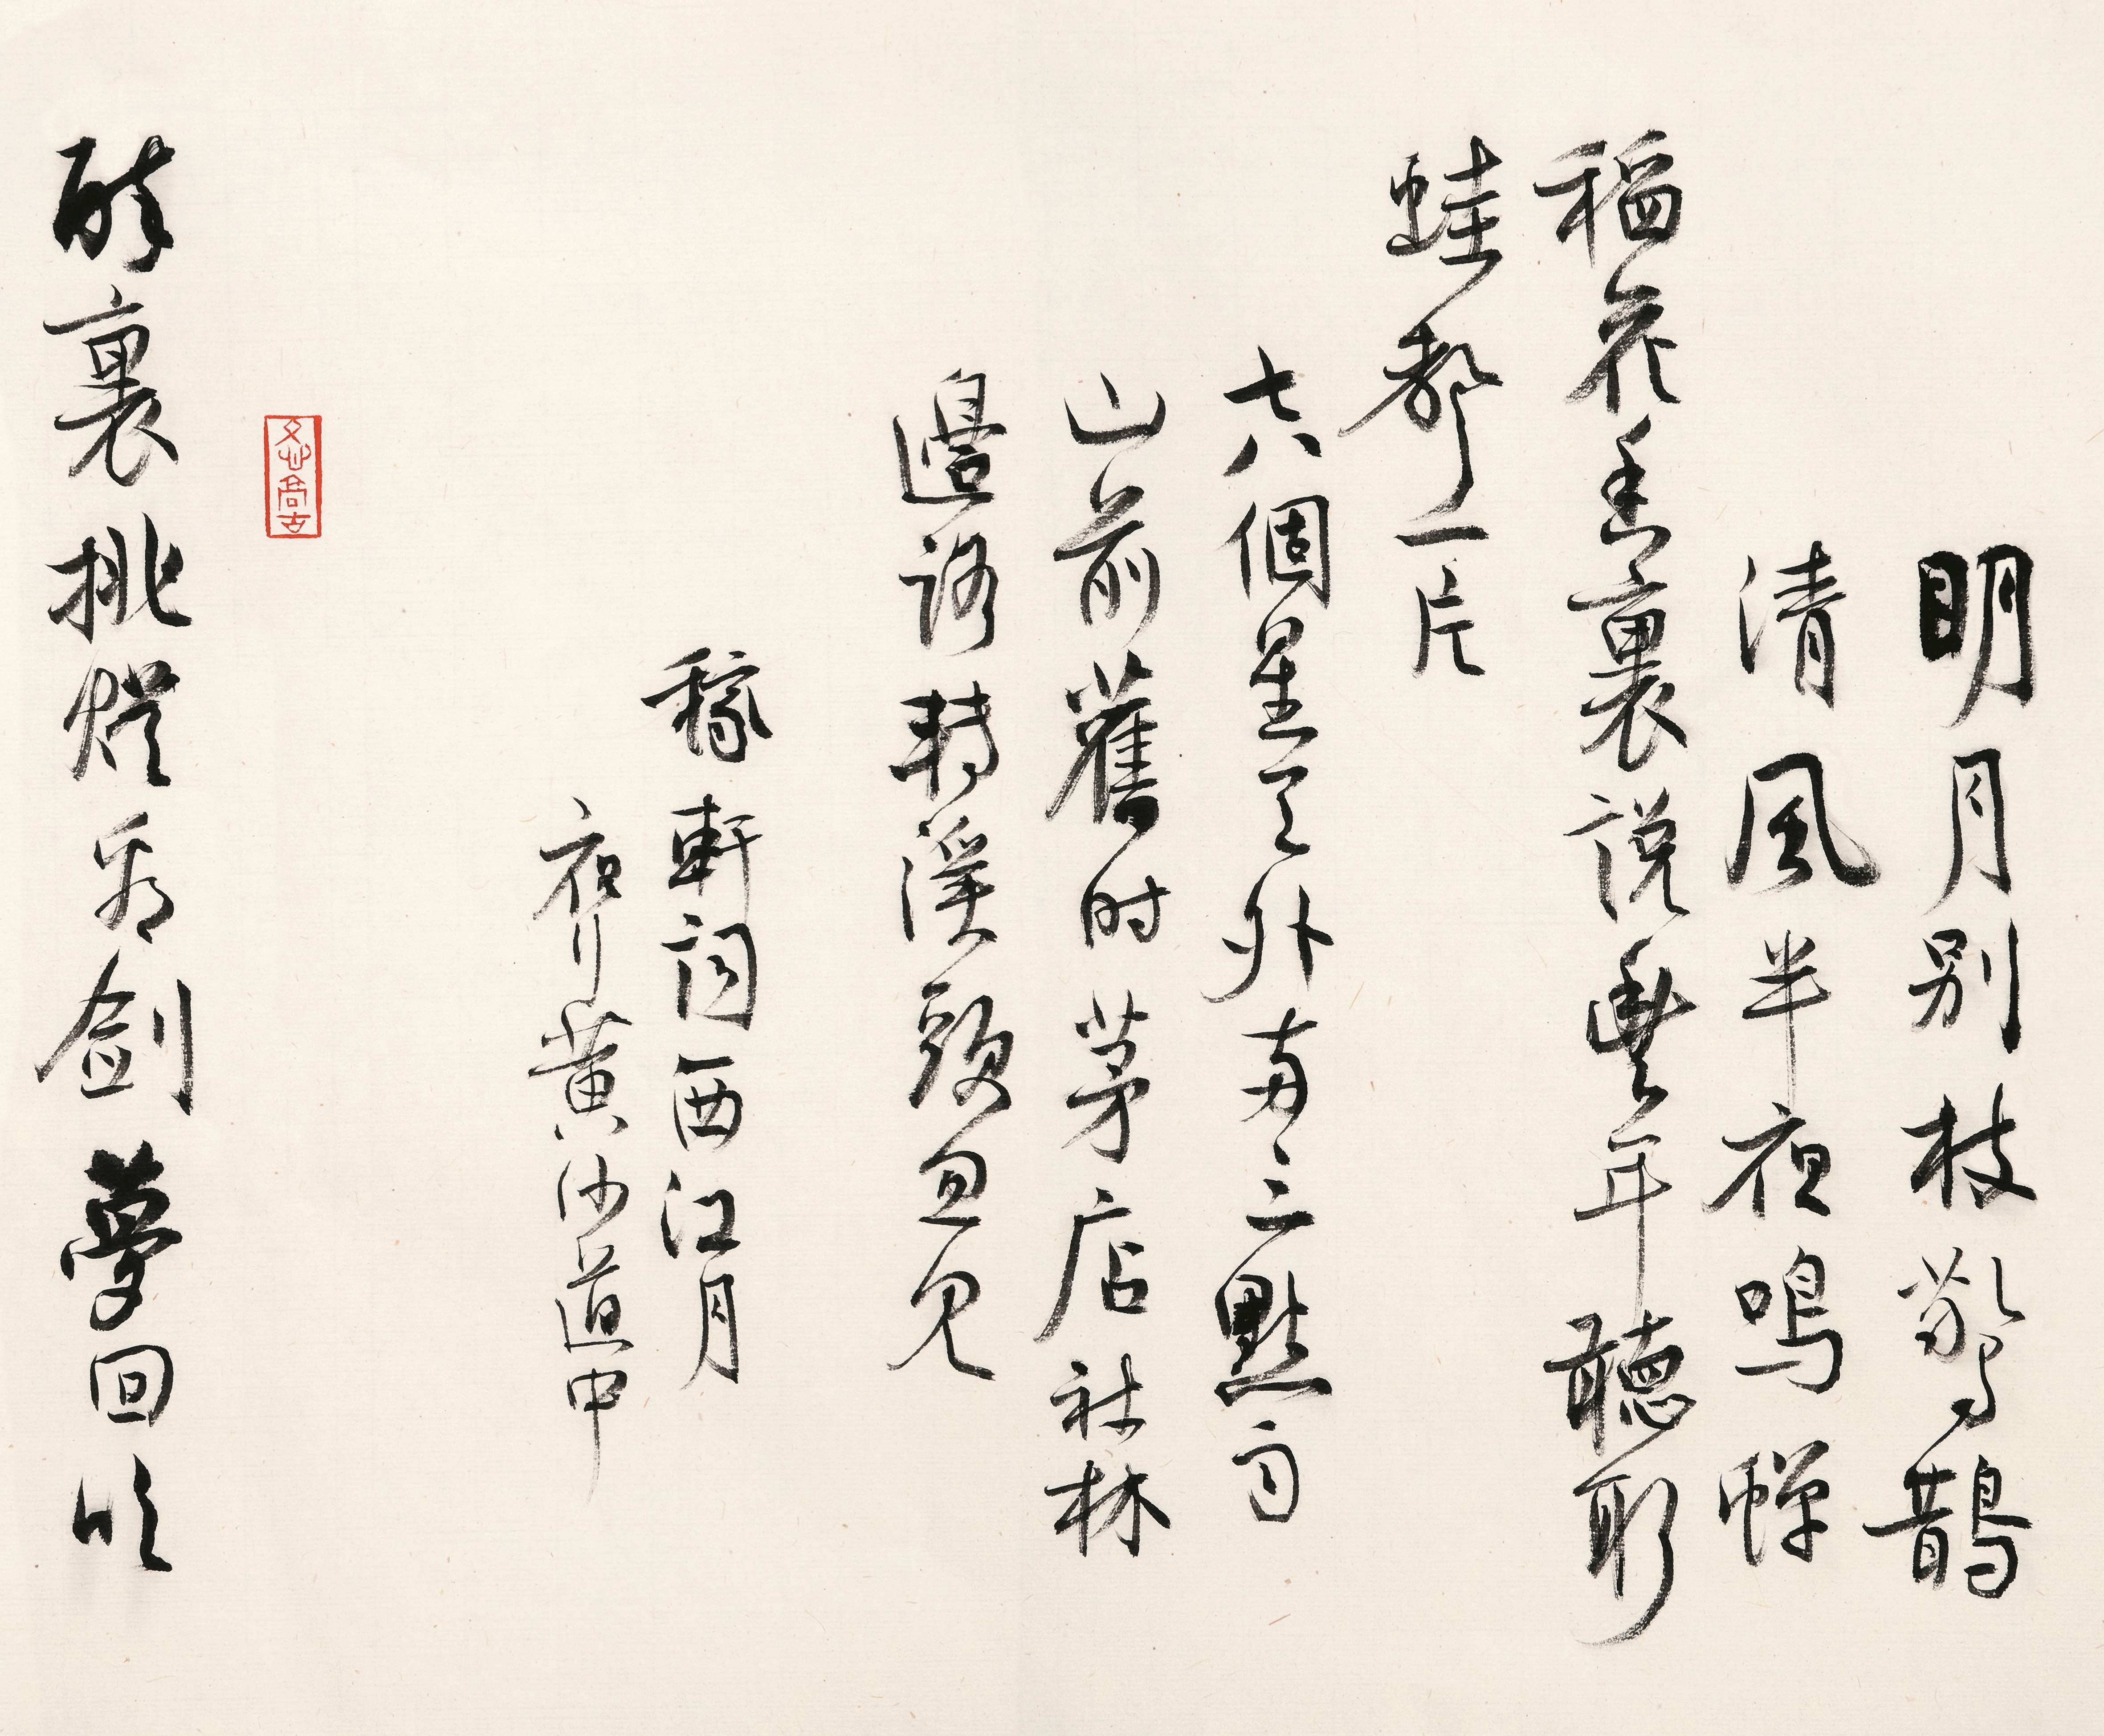 明月别枝驚鵲
清風半夜鳴蟬
稻花香裏說豐年聽取
蛙聲一片
七八個星天外兩三點雨
山前舊时茅店社林
邊路轉溪頭忽見
稼軒詞西江月
夜行黄沙道中
尚古
醉裏挑燈看劍夢回吹